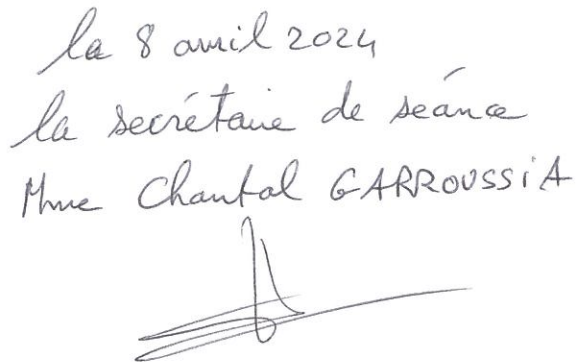 la 8 avril 2024
la secrétaire de séance
Mme Chantal GARROUSSIA